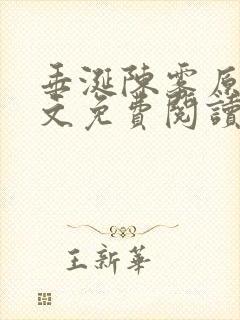 垂涎陳雾原
文免費閱讀
王新華